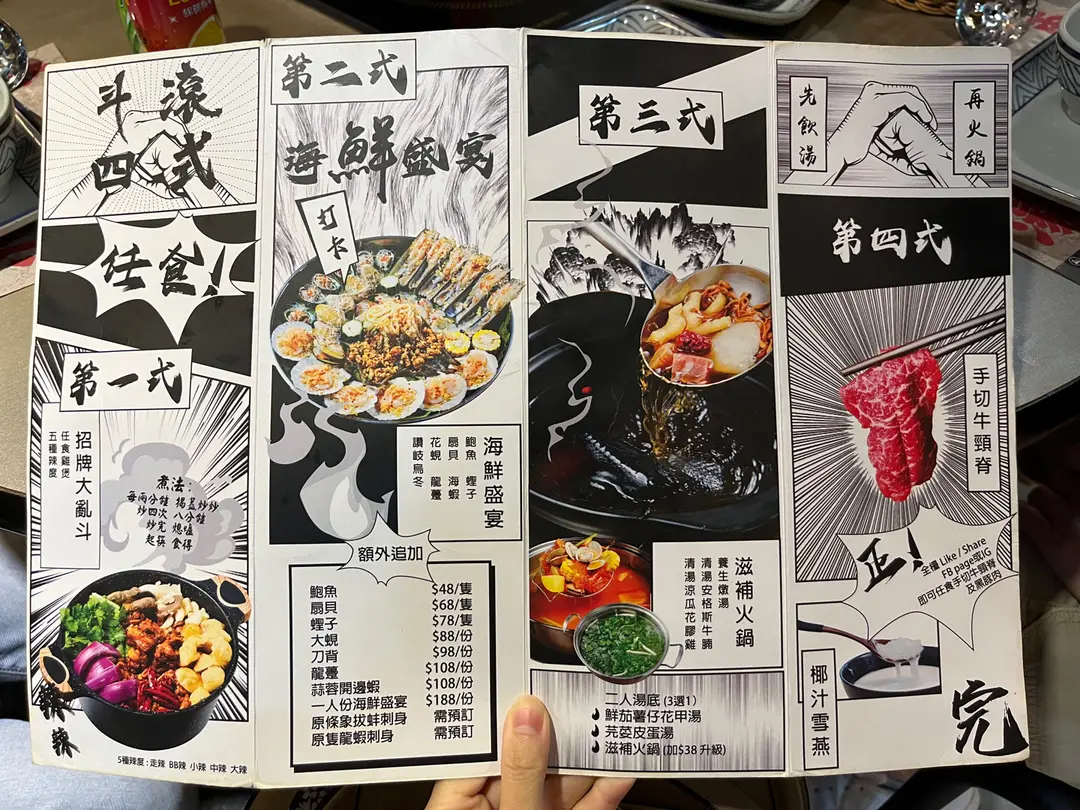 滾斗
四式
任食！
第一式
招牌大亂斗
任食雞煲
五種辣度
煮法：
每兩分鐘 揭蓋炒炒
炒四次 八分鐘
炒完 熄爐
起筷 食得
辣
辣
5種辣度：走辣 BB辣 小辣 中辣 大辣
第二式
海鮮盛宴
打卡
海鮮盛宴
鮑魚 蟶子
扇貝 海蝦
花蜆 龍躉
讚岐烏冬
額外追加
鮑魚 $48/隻
扇貝 $68/隻
蟶子 $78/隻
大蜆 $88/份
刀背 $98/份
龍躉 $108/份
蒜蓉開邊蝦 $108/份
一人份海鮮盛宴 $188/份
原條象拔蚌刺身 需預訂
原隻龍蝦刺身 需預訂
第三式
滋補火鍋
養生燉湯
清湯安格斯牛腩
清湯涼瓜花膠雞
二人湯底 (3選1)
鮮茄薯仔花甲湯
芫荽皮蛋湯
滋補火鍋 (加$38 升級)
先飲湯
再火鍋
第四式
手切牛頸脊
正！
全檯 Like / Share
FB page或IG
即可任食手切牛頸脊
及黑豚肉
椰汁雪燕
完